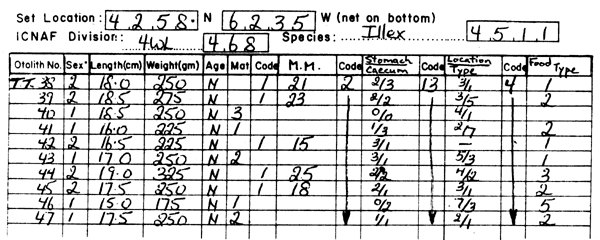 Set Location: 42.58· N 62.35 W (net on bottom)
ICNAF Division: 4WX 468 Species: Illex 4511
Otolith No. Sex* Length(cm) Weight(gm) Age Mat Code M.M. Code Stomach Caecum Code Location Type Code Food Type
T.T. 38 2 18.0 250 N 1 21 2 2/3 13 3/1 4 1
39 2 18.5 275 N 1 23 2/2 3/5 2
40 1 18.5 250 N 3 0/0 4/1
41 1 16.0 225 N 1 1/3 2/7 2
42 2 16.5 225 N 1 15 3/1 — 1
43 1 17.0 250 N 2 3/1 5/3 1
44 2 19.0 325 N 1 25 2/2 4/2 3
45 2 17.5 250 N 1 18 2/1 3/1 2
46 1 15.0 175 N 1 0/2 7/3 5
47 1 17.5 250 N 2 1/1 2/1 2